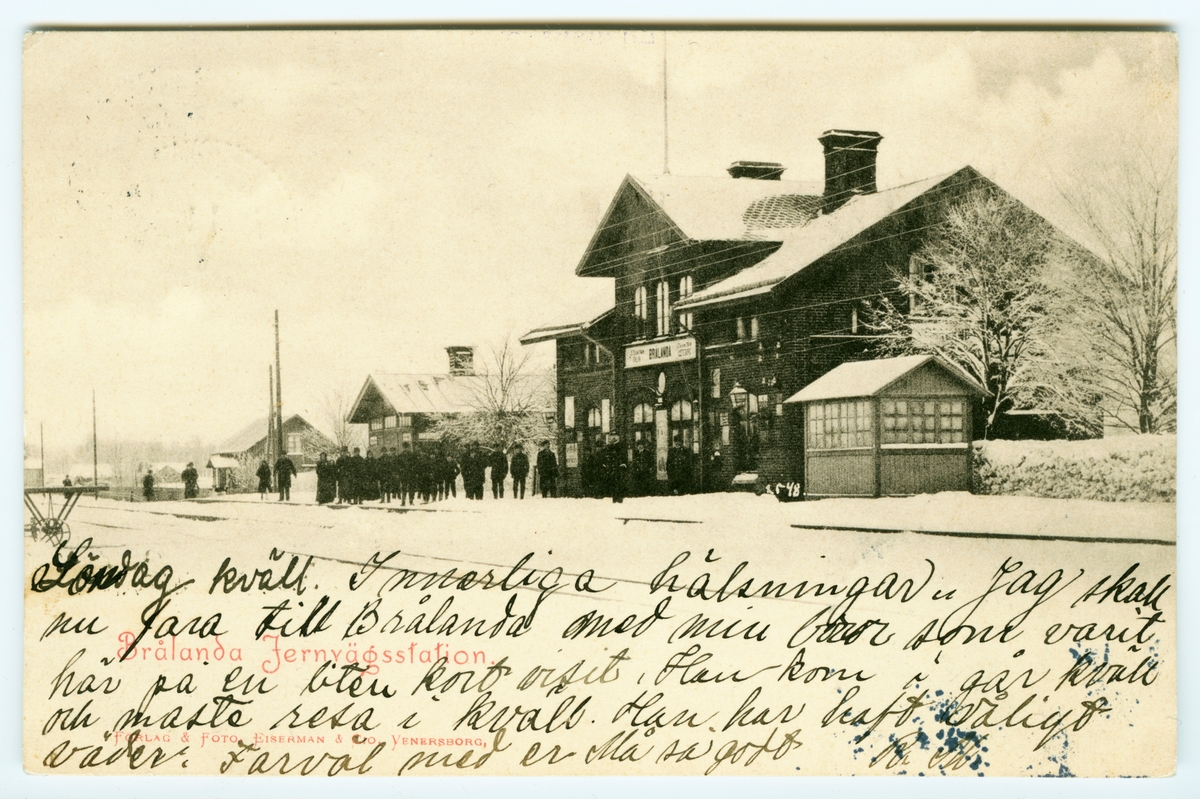 BRÅLANDA
2548
Söndag kväll. Innerliga hälsningar. Jag skall
nu fara till Brålanda med min bror som varit
Brålanda Jernvägsstation.
här på en liten kort visit. Han kom i går kväll
och måste resa i kväll. Han har haft dåligt
FÖRLAG & FOTO. EISERMAN & CO. VENERSBORG.
väder. Farväl med er Må så godt